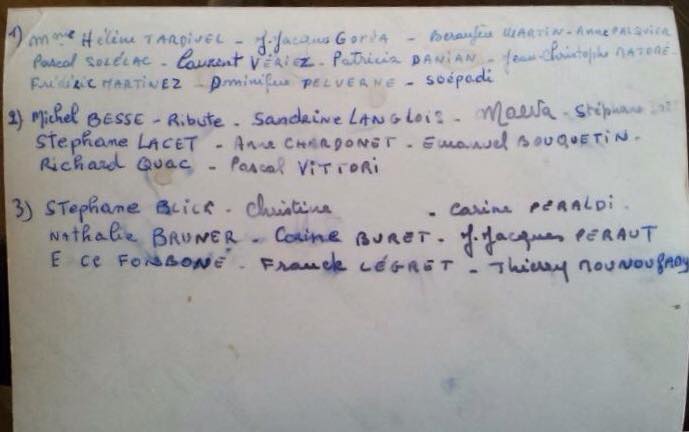 1) Mme Hélène TARDIVEL - J. Jacques GORDA - MARTIN - Anne PALQUIER
Pascal SOLÉLAC - Laurent VÉRIEZ - Patricia DANIAN - Jean-Christophe
Frédéric MARTINEZ - Dominique DELVERNE - Soépadi
2) Michel BESSE - Ribute - Sandrine LANGLOIS - Maeva - Stéphane
Stephane LACET - Anne CHARDONET - Emanuel BOUQUETIN -
Richard QUAC - Pascal VITTORI
3) Stephane BLICK - Christine - Carine PERALDI.
Nathalie BRUNER - Corine BURET - J. Jacques PERAUT
E CE FONBONE - Franck LÉGRET - Thierry